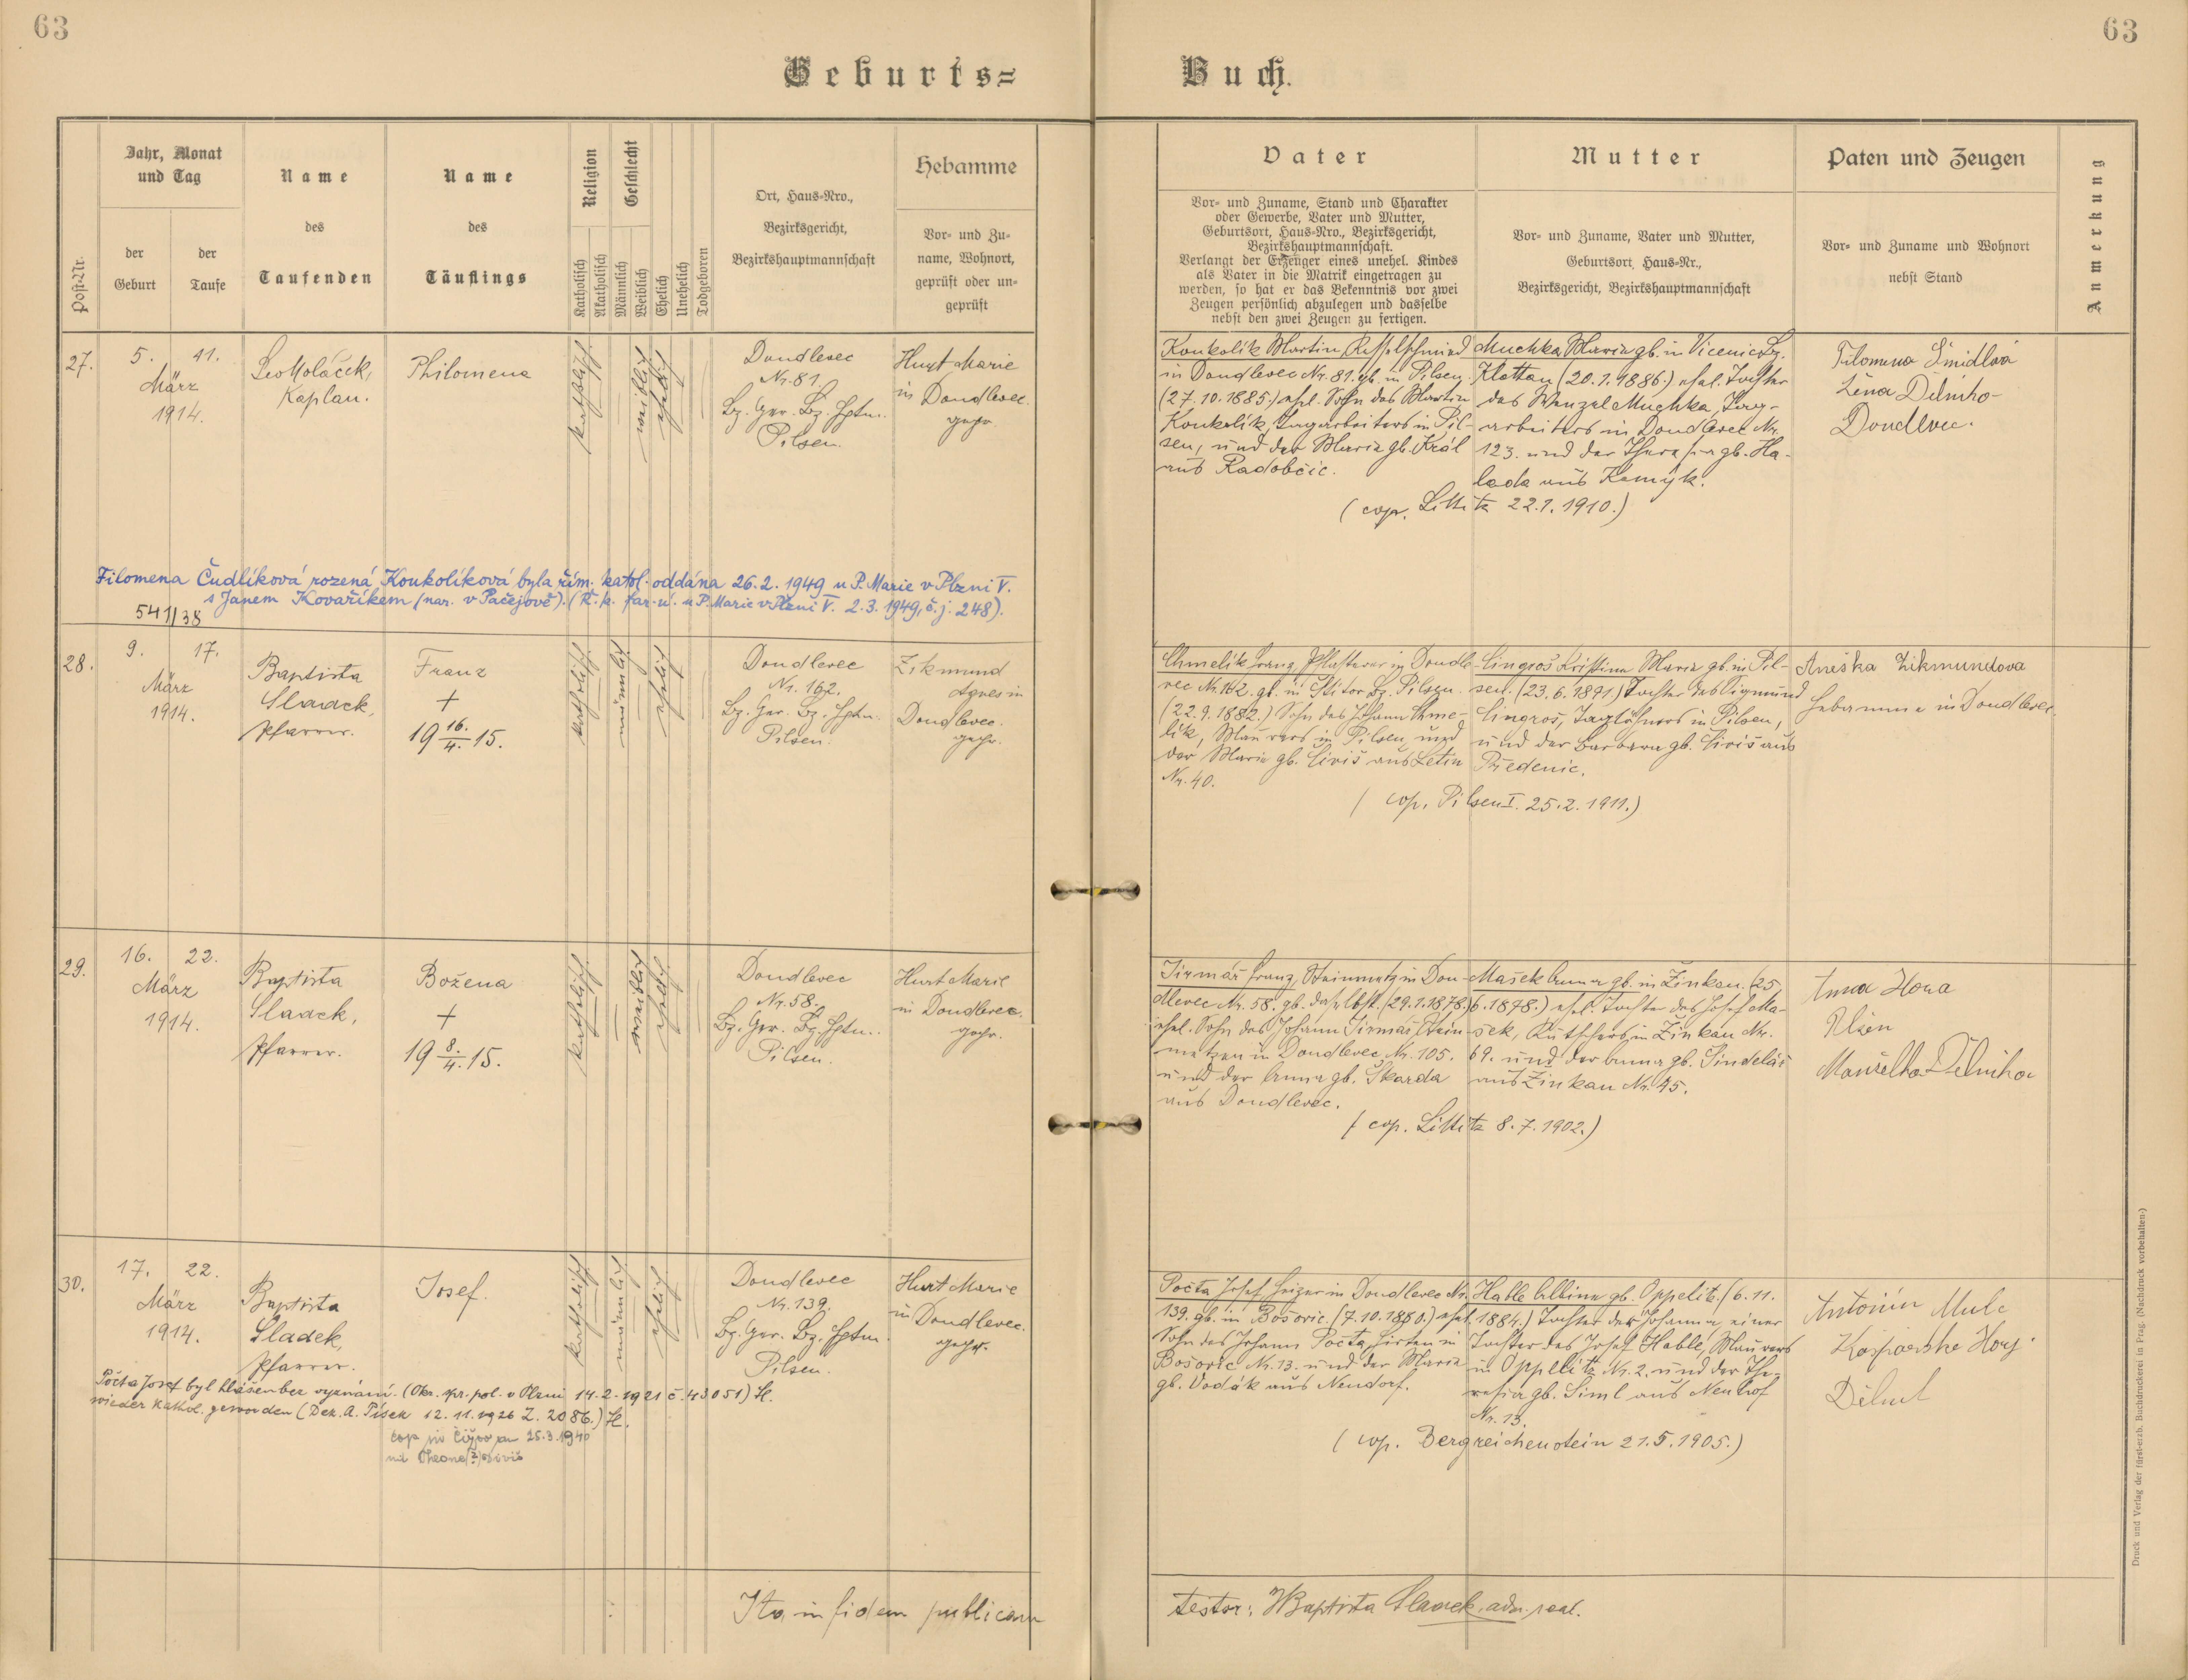 63
63
Geburts=
Buch.
Post-Nr.
Jahr, Monat
und Tag
der
Geburt
der
Taufe
Name
des
Taufenden
Name
des
Täuflings
Religion
Katholisch
Akatholisch
Geschlecht
Männlich
Weiblich
Ehelich
Unehelich
Todgeboren
Ort, Haus=Nro.,
Bezirksgericht,
Bezirkshauptmannschaft
Hebamme
Vor= und Zu=
name, Wohnort,
geprüft oder un=
geprüft
Vater
Vor= und Zuname, Stand und Charakter
oder Gewerbe, Vater und Mutter,
Geburtsort, Haus=Nro., Bezirksgericht,
Bezirkshauptmannschaft.
Verlangt der Erzeuger eines unehel. Kindes
als Vater in die Matrik eingetragen zu
werden, so hat er das Bekenntnis vor zwei
Zeugen persönlich abzulegen und dasselbe
nebst den zwei Zeugen zu fertigen.
Mutter
Vor= und Zuname, Vater und Mutter,
Geburtsort, Haus=Nr.,
Bezirksgericht, Bezirkshauptmannschaft
Paten und Zeugen
Vor= und Zuname und Wohnort
nebst Stand
Anmerkung
27.
5. 11.
März
1914.
Leo Moláček,
Kaplan.
Philomena
katholisch
weiblich
ehelich
Doudlevec
Nr. 81.
Bz. Ger. Bz. Hptm.
Pilsen.
Hurt Marie
in Doudlevec.
gepr.
Koukolík Martin, Kesselschmied
in Doudlevec Nr. 81. gb. in Pilsen
(27.10.1885.) ehel. Sohn des Martin
Koukolík, Tagarbeiters in Pil-
sen, und der Maria gb. Král
aus Radobčic.
Muchka Maria gb. in Vicenic Bz.
Klattau (20.1.1886.) ehel. Tochter
des Wenzel Muchka, Tag-
arbeiters in Doudlevec Nr.
123. und der Theresia gb. Ha-
lada aus Kamýk.
(cop. Littitz 22.1.1910.)
Filomena Šmidlová
žena Dělnika
Doudlevec.
Filomena Čudlíková rozená Koukolíková byla řím. katol. oddána 26.2.1949 u P. Marie v Plzni V.
s Janem Kovaříkem (nar. v Pačejově). (Ř. k. far. ú. u P. Marie v Plzni V. 2.3.1949, č.j. 248).
541/38
28.
9. 17.
März
1914.
Baptista
Sladek,
Pfarrer.
Franz
+
19 16./4. 15.
katholisch
männlich
ehelich
Doudlevec
Nr. 162.
Bz. Ger. Bz. Hptm.
Pilsen.
Zikmund
Agnes in
Doudlevec.
gepr.
Chmelík Franz, Pflasterer in Doudle-
vec Nr. 162. gb. in Bz. Pilsen.
(22.9.1882.) Sohn des Johann Chme-
lík, Maurers in Pilsen und
der Maria gb. aus Letin
Nr. 40.
Cingroš Kristina Maria gb. in Pil-
sen. (23.6.1891.) Tochter des Sigmund
Cingroš, Taglöhners in Pilsen,
und der Barbara gb. aus
Předenic.
(cop. Pilsen I. 25.2.1911.)
Aneška Zikmundova
Hebamme in Doudlevec.
29.
16. 22.
März
1914.
Baptista
Sladek,
Pfarrer.
Božena
+
19 8./4. 15.
katholisch
weiblich
ehelich
Doudlevec
Nr. 58.
Bz. Ger. Bz. Hptm.
Pilsen.
Hurt Marie
in Doudlevec.
gepr.
Jirmář Franz, Steinmetz in Dou-
dlevec Nr. 58. gb. daselbst. (29.1.1878.)
ehel. Sohn des Johann Jirmář, Stein-
metzen in Doudlevec Nr. 105.
und der Anna gb. Škarda
aus Doudlevec.
Mašek Anna gb. in Žinkau. (25.
6.1878.) ehel. Tochter des Josef Ma-
šek, Kutschers in Žinkau Nr.
69. und der Anna gb. Šindelář
aus Žinkau Nr. 45.
(cop. Littitz 8.7.1902.)
Anna Hora
Plzen
Manželka Dělnika
30.
17. 22.
März
1914.
Baptista
Sladek,
Pfarrer.
Josef.
katholisch
männlich
ehelich
Doudlevec
Nr. 139.
Bz. Ger. Bz. Hptm.
Pilsen.
Hurt Marie
in Doudlevec.
gepr.
Počta Josef, Heizer in Doudlevec Nr.
139. gb. in Bošovic (7.10.1880.) ehel.
Sohn des Johann Počta, Hirten in
Bošovic Nr. 13. und der Maria
gb. Vodák aus Neudorf.
Hable Albina gb. Oppelitz. (6.11.
1884.) Tochter der Johanna einer
Tochter des Josef Hable, Maurers
in Oppelitz Nr. 2. und der The-
resia gb. Siml aus Neuhof
Nr. 13.
(cop. Bergreichenstein 21.5.1905.)
Antonín Mulc
Kašparské Hory
Dělník
Počta Josef byl hlášen bez vyznání. (Okr. spr. pol. v Plzni 14.2.1921 č. 43051) Sl.
wieder kathol. geworden (Dek. A. Písek 12.11.1926 Z. 2086.) Sl.
25.3.1940
Ita in fidem publicam
testor: Baptista Sladek, adm. paal.
Druck und Verlag der fürst-erzb. Buchdruckerei in Prag. (Nachdruck vorbehalten.)